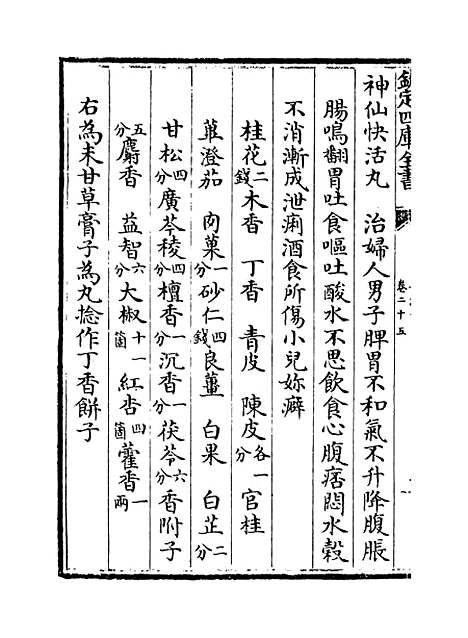 欽定四庫全書
卷二十五
神仙快活丸　治婦人男子脾胃不和氣不升降腹脹
腸鳴翻胃吐食嘔吐酸水不思飲食心腹痞悶水穀
不消漸成泄痢酒食所傷小兒妳癖
桂花二錢木香　丁香　青皮　陳皮各一分官桂
蓽澄茄　肉菓一分砂仁四錢良薑　白果　白芷二分
甘松四分廣苓稜四分檀香一分沉香一分茯苓六分香附子
五分麝香　益智六分大椒十一箇紅杏四箇藿香一兩
右為末甘草膏子為丸捻作丁香餅子